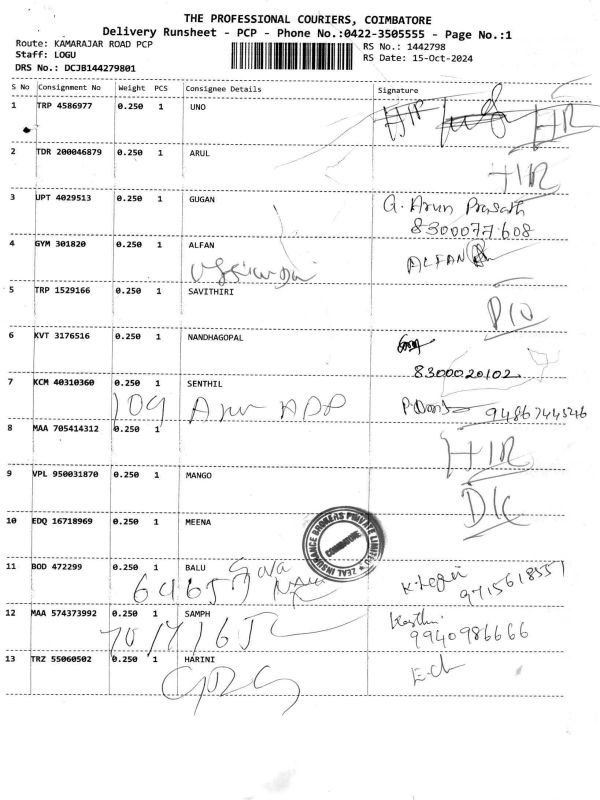 THE PROFESSIONAL COURIERS, COIMBATORE
Delivery Runsheet - PCP - Phone No.:0422-3505555 - Page No.:1
Route: KAMARAJAR ROAD PCP
RS No.: 1442798
Staff: LOGU
RS Date: 15-Oct-2024
DRS No.: DCJB144279801
S No Consignment No Weight PCS Consignee Details Signature
1 TRP 4586977 0.250 1 UNO
2 TDR 200046879 0.250 1 ARUL
3 UPT 4029513 0.250 1 GUGAN G. Arun Prasath
8300077608
4 GYM 301820 0.250 1 ALFAN ALFAN
5 TRP 1529166 0.250 1 SAVITHIRI
6 KVT 3176516 0.250 1 NANDHAGOPAL
8300020102
7 KCM 40310360 0.250 1 SENTHIL
109 9486744546
8 MAA 705414312 0.250 1 HIR
9 VPL 950031870 0.250 1 MANGO
D/C
10 EDQ 16718969 0.250 1 MEENA
ZEAL INSURANCE BROKERS PRIVATE LIMITED
COIMBATORE
11 BOD 472299 0.250 1 BALU
9715618551
12 MAA 574373992 0.250 1 SAMPH
9940986666
13 TRZ 55060502 0.250 1 HARINI